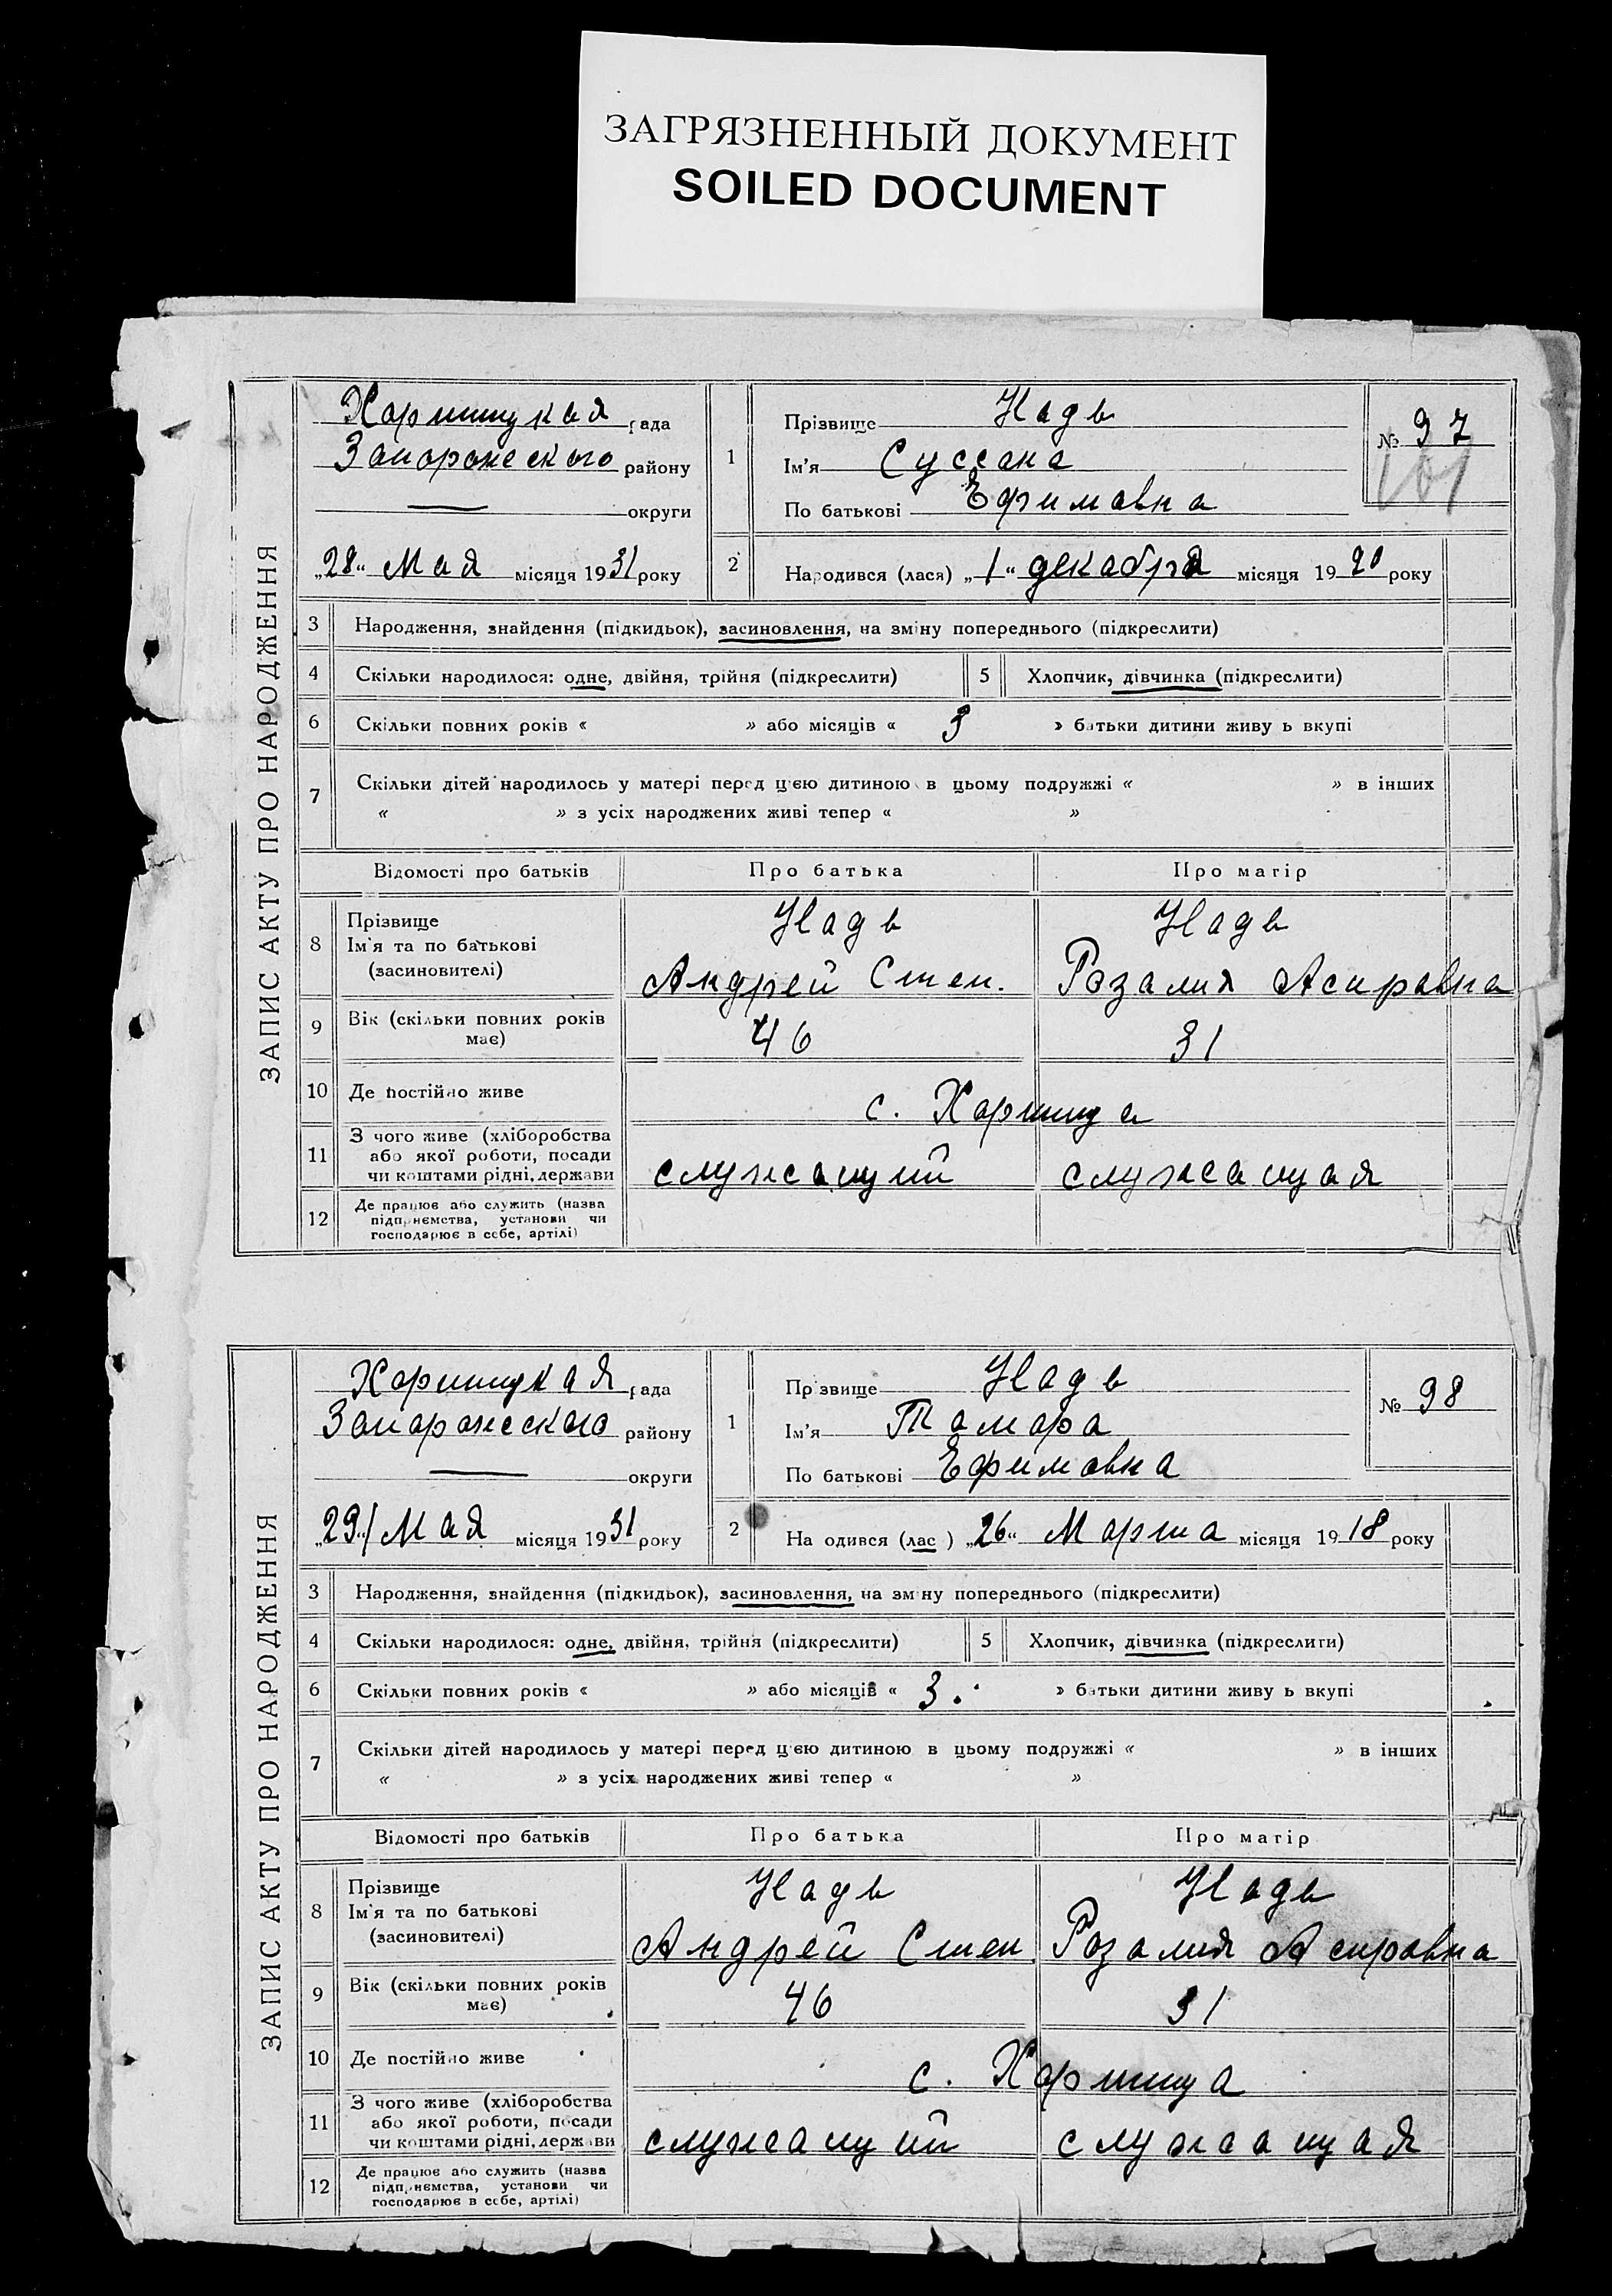 ЗАГРЯЗНЕННЫЙ ДОКУМЕНТ
SOILED DOCUMENT
ЗАПИС АКТУ ПРО НАРОДЖЕННЯ
Хортицкая рада
Запорожского району
округи
„28“ Мая місяця 1931 року
1
Прізвище Надь
Ім'я Суссана
По батькові Ефимовна
№ 97
101
2
Народився (лася) „1“ декабря місяця 1920 року
3 Народження, знайдення (підкидьок), засиновлення, на зміну попереднього (підкреслити)
4 Скільки народилося: одне, двійня, трійня (підкреслити) 5 Хлопчик, дівчинка (підкреслити)
6 Скільки повних років « » або місяців « 3 » батьки дитини живу ь вкупі
7 Скільки дітей народилось у матері перед цією дитиною в цьому подружжі « » в інших
« » з усіх народжених живі тепер « »
Відомості про батьків Про батька Про матір
8 Прізвище
Ім'я та по батькові
(засиновителі)
Надь
Андрей Степ.
Надь
Розалия Аспровна
9 Вік (скільки повних років
має)
46
31
10 Де постійно живе
с. Хортица
11 З чого живе (хліборобства
або якої роботи, посади
чи коштами рідні, держави
служащий
служащая
12 Де працює або служить (назва
підприємства, установи чи
господарює в себе, артілі)
ЗАПИС АКТУ ПРО НАРОДЖЕННЯ
Хортицкая рада
Запорожского району
округи
„29“ Мая місяця 1931 року
1
Пр звище Надь
Ім'я Тамара
По батькові Ефимовна
№ 98
2
На одився (лас ) „26“ Марта місяця 1918 року
3 Народження, знайдення (підкидьок), засиновлення, на зм ну попереднього (підкреслити)
4 Скільки народилося: одне, двійня, трійня (підкреслити) 5 Хлопчик, дівчинка (підкреслити)
6 Скільки повних років « » або місяців « 3. » батьки дитини живу ь вкупі
7 Скільки дітей народилось у матері перед цією дитиною в цьому подружжі « » в інших
« » з усіх народжених живі тепер « »
Відомості про батьків Про батька Про матір
8 Прізвище
Ім'я та по батькові
(засиновителі)
Надь
Андрей Степ.
Надь
Розалия Аспровна
9 Вік (скільки повних років
має)
46
31
10 Де постійно живе
с. Хортица
11 З чого живе (хліборобства
або якої роботи, посади
чи коштами рідні, держави
служащий
служащая
12 Де працює або служить (назва
підприємства, установи чи
господарює в себе, артілі)